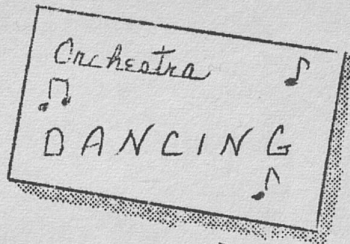 Orchestra
DANCING